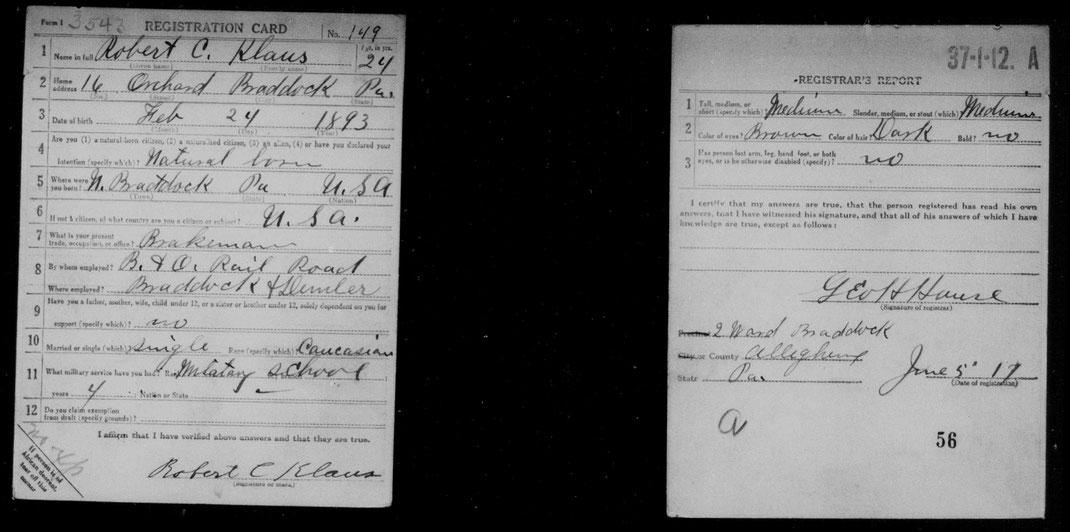 Form 1 3543 REGISTRATION CARD No. 149
1 Name in full Robert C. Klaus Age, in yrs. 24
(Given name) (Family name)
2 Home address 16 Orchard Braddock Pa.
(No.) (Street) (City) (State)
3 Date of birth Feb 24 1893
(Month) (Day) (Year)
4 Are you (1) a natural-born citizen, (2) a naturalized citizen, (3) an alien, (4) or have you declared your
intention (specify which)? Natural born
5 Where were you born? N. Braddock Pa U.S.A
(Town) (State) (Nation)
6 If not a citizen, of what country are you a citizen or subject? U.S.A.
7 What is your present trade, occupation, or office? Brakeman
8 By whom employed? B. & O. Rail Road
Where employed? Braddock &
9 Have you a father, mother, wife, child under 12, or a sister or brother under 12, solely dependent on you for
support (specify which)? no
10 Married or single (which)? single Race (specify which)? Caucasian
11 What military service have you had? Rank Milatary School
years 4 ; Nation or State –
12 Do you claim exemption
from draft (specify grounds)?
I affirm that I have verified above answers and that they are true.
Robert C Klaus
(Signature or mark)
If person is of
African descent,
tear off this
corner
37-1-12. A
REGISTRAR'S REPORT
1 Tall, medium, or short (specify which)? Medium Slender, medium, or stout (which)? Medium
2 Color of eyes? Brown Color of hair? Dark Bald? no
3 Has person lost arm, leg, hand, foot, or both
eyes, or is he otherwise disabled (specify)? no
I certify that my answers are true, that the person registered has read his own
answers, that I have witnessed his signature, and that all of his answers of which I have
knowledge are true, except as follows:
Geo H House
(Signature of registrar)
Precinct 2 Ward Braddock
City or County Allegheny
State Pa. June 5" 17
(Date of registration)
a
56